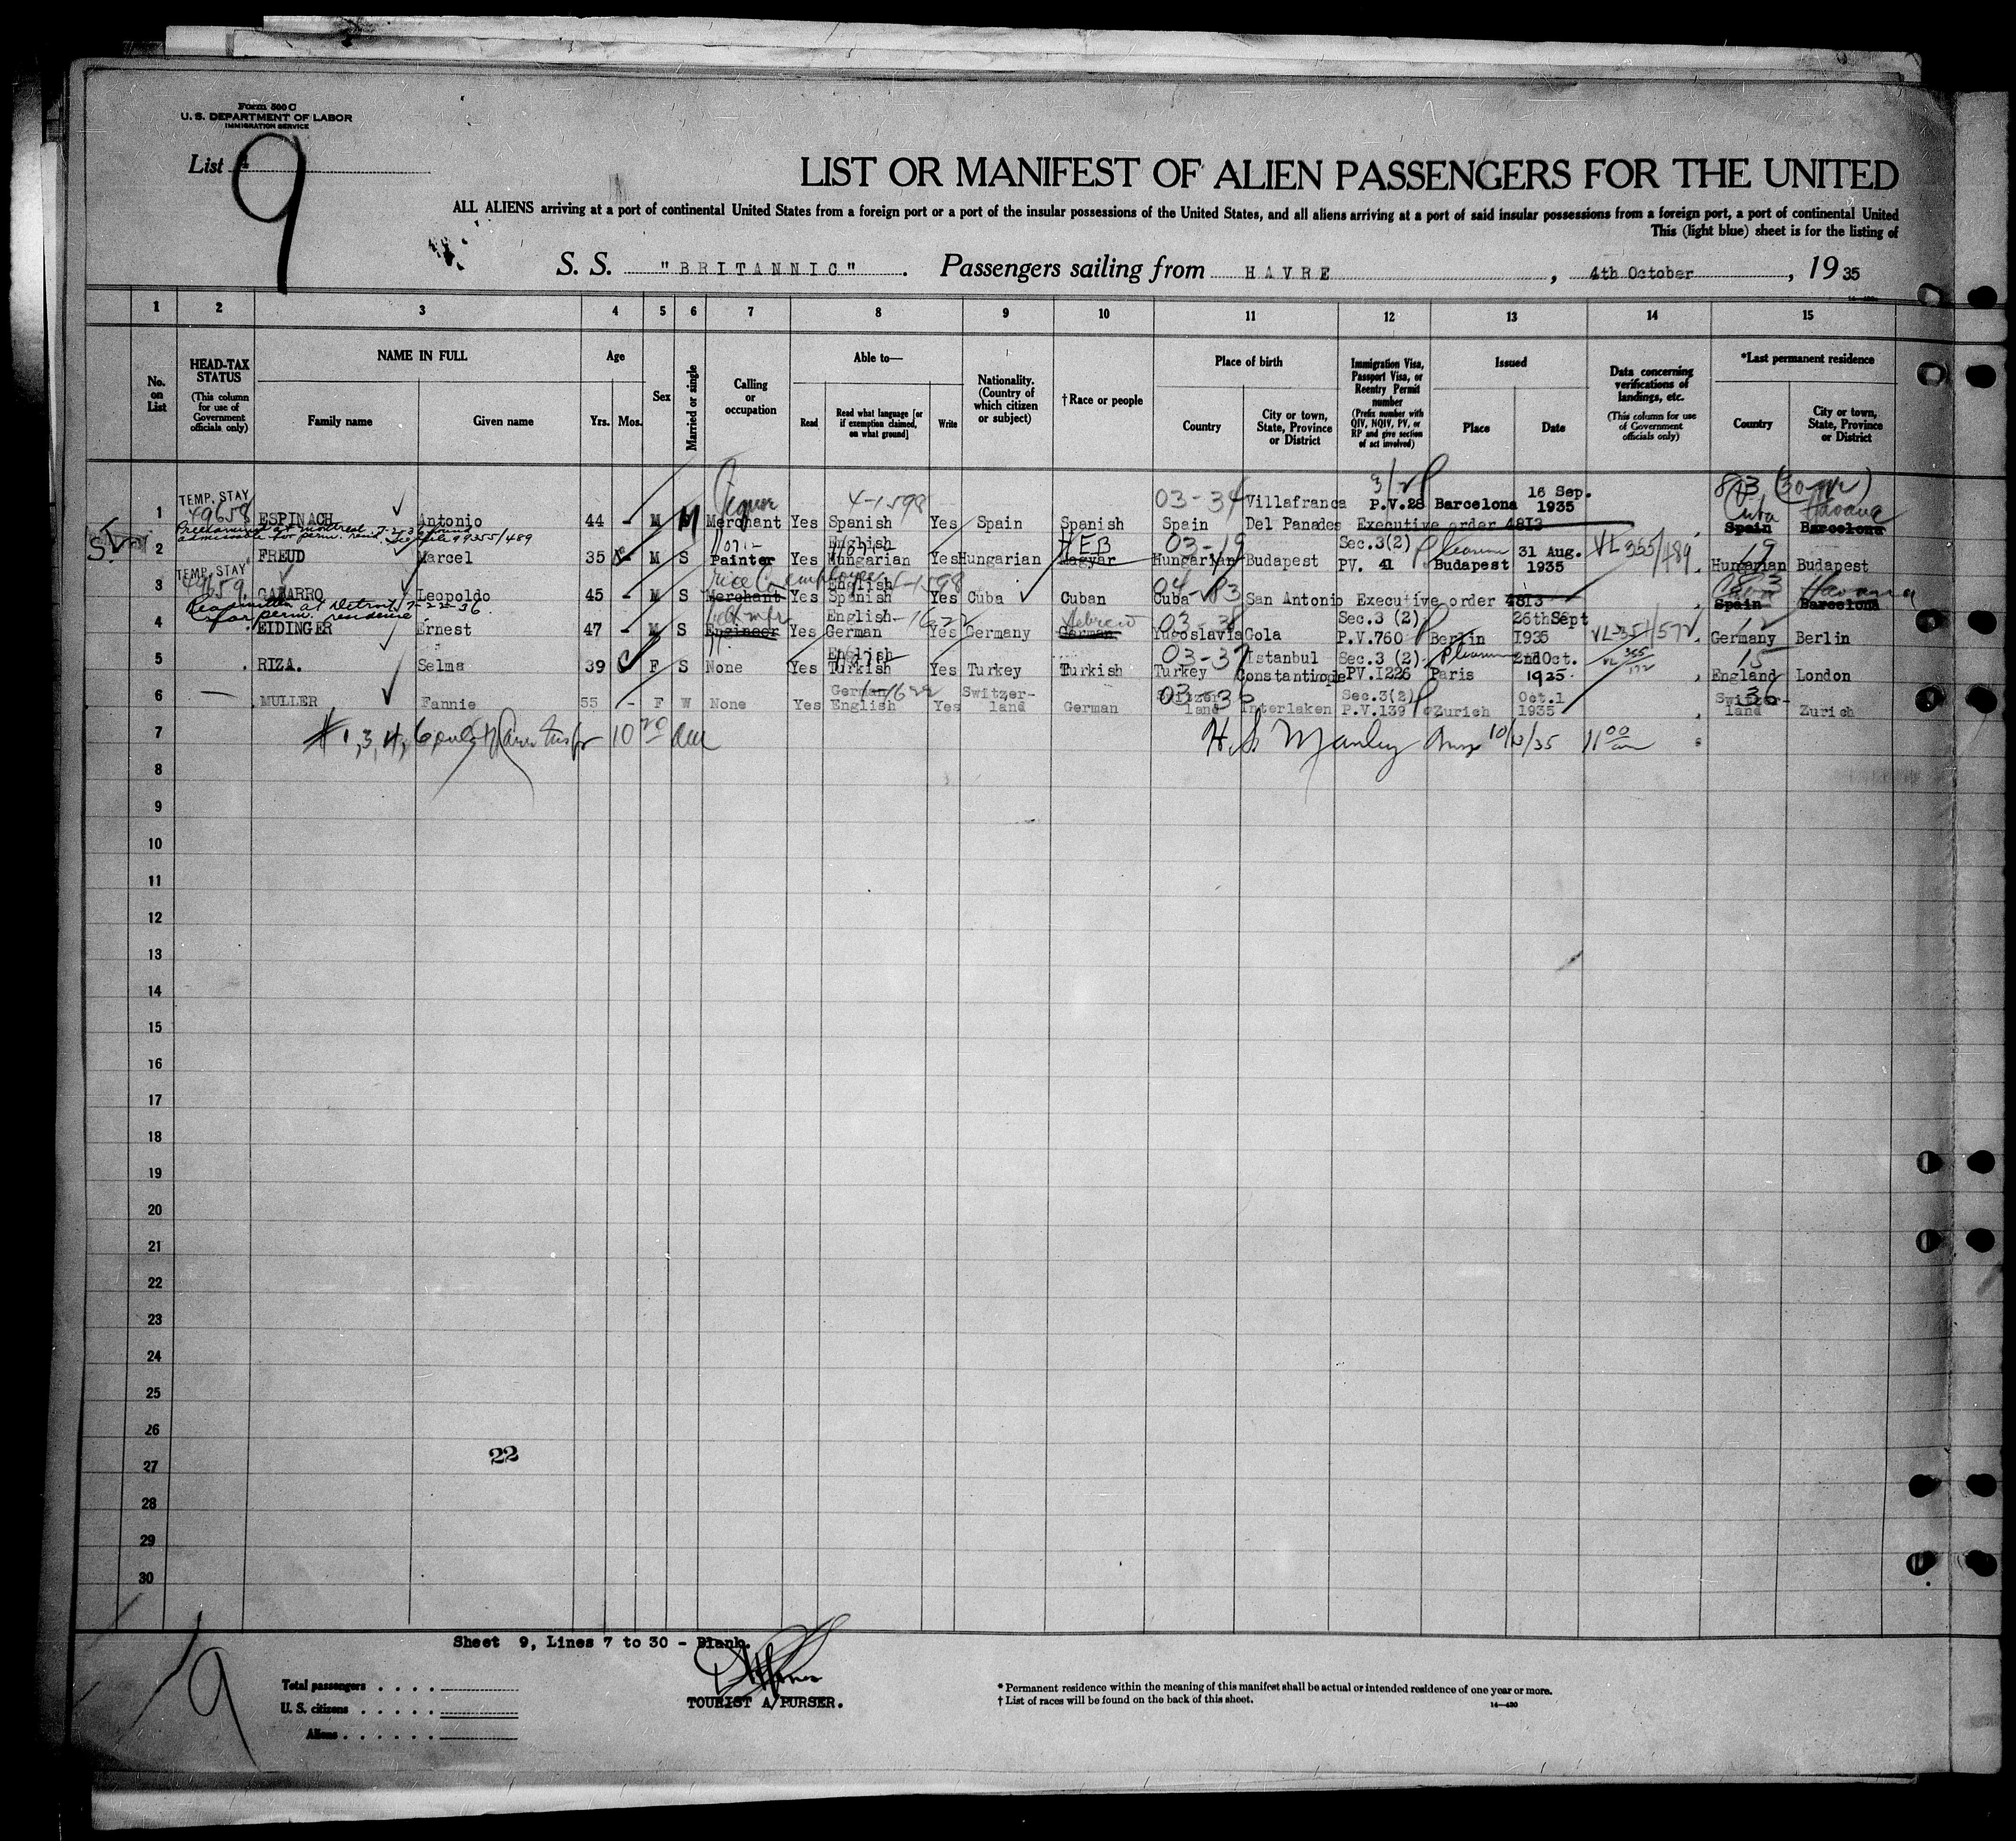 Form 500 C
U. S. DEPARTMENT OF LABOR
IMMIGRATION SERVICE
List 9
LIST OR MANIFEST OF ALIEN PASSENGERS FOR THE UNITED
ALL ALIENS arriving at a port of continental United States from a foreign port or a port of the insular possessions of the United States, and all aliens arriving at a port of said insular possessions from a foreign port, a port of continental United
This (light blue) sheet is for the listing of
S. S. "BRITANNIC". Passengers sailing from HAVRE, 4th October, 1935
1 2 3 4 5 6 7 8 9 10 11 12 13 14 15
No. on List
HEAD-TAX STATUS (This column for use of Government officials only)
NAME IN FULL Family name Given name
Age Yrs. Mos.
Sex
Married or single
Calling or occupation
Able to— Read Read what language [or if exemption claimed, on what ground] Write
Nationality. (Country of which citizen or subject)
†Race or people
Place of birth Country City or town, State, Province or District
Immigration Visa, Passport Visa, or Reentry Permit number (Prefix number with QIV, NQIV, PV, or RP and give section of act involved)
Issued Place Date
Data concerning verifications of landings, etc. (This column for use of Government officials only)
*Last permanent residence Country City or town, State, Province or District
TEMP. STAY 4-1598 03-34 Villafranca 3/28 P.V.28 Barcelona 16 Sep. 1935 Cuba Havana
1 49658 ESPINACH Antonio 44 - M M Merchant Yes Spanish Yes Spain Spanish Spain Del Panades Executive order 4813 Spain Barcelona
admissible for perm. resid. 99355/489
2 FREUD Marcel 35 M S Painter Yes English Hungarian Yes Hungarian HEB Magyar 03-19 Hungarian Budapest Sec.3(2) PV. 41 Budapest 31 Aug. 1935 VL 355/489 Hungarian Budapest
TEMP. STAY
3 49659 Leopoldo 45 - M S Merchant Yes English Spanish Yes Cuba Cuban Cuba San Antonio Executive order 4813 Havana Spain Barcelona
at Detroit 7-22-36 for perm. residence
4 EIDINGER Ernest 47 - M S Engineer Yes English German Yes Germany Hebrew German 03-38 Yugoslavia Cola Sec.3 (2) P.V.760 Berlin 26th Sept 1935 VL-351/572 Germany Berlin
5 RIZA. Selma 39 F S None Yes English Turkish Yes Turkey Turkish 03-37 Turkey Istanbul Constantinople Sec.3 (2) PV.1226 Paris 2nd Oct. 1925 15 England London
6 MULLER Fannie 55 - F W None Yes German English Yes Switzer-land German Switzer-land Interlaken Sec.3(2) P.V.139 Zurich Oct.1 1935 Switzer-land Zurich
7 H. S. Manley 11 00 am
8
9
10
11
12
13
14
15
16
17
18
19
20
21
22
23
24
25
26
22
27
28
29
30
Sheet 9, Lines 7 to 30 - Blank.
9
TOURIST A/PURSER.
Total passengers
U. S. citizens
Aliens
* Permanent residence within the meaning of this manifest shall be actual or intended residence of one year or more.
† List of races will be found on the back of this sheet.
14—430